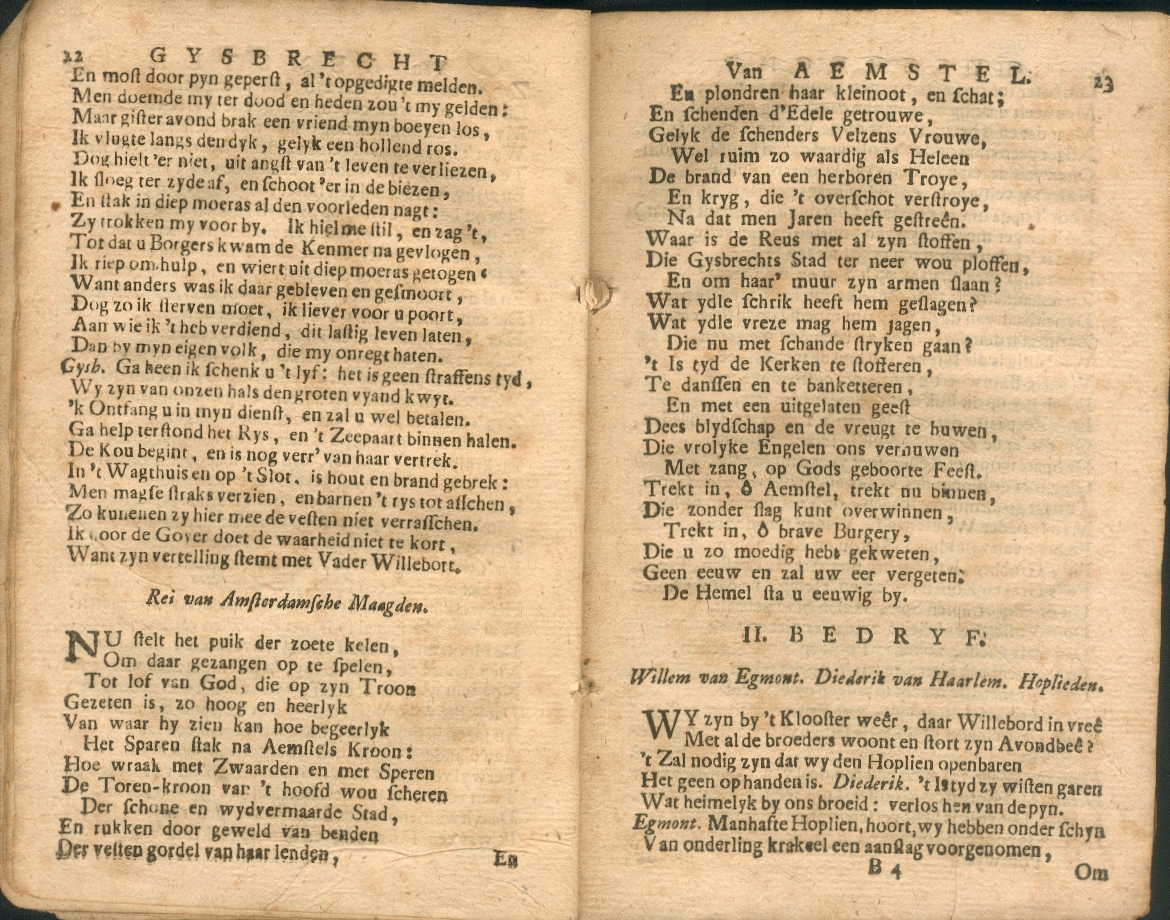 22 GYSBRECHT
En moſt door pyn geperſt, al 't opgedigte melden.
Men doemde my ter dood en heden zou 't my gelden:
Maar giſter avond brak een vriend myn boeyen los,
Ik vlugte langs den dyk, gelyk een hollend ros.
Dog hielt 'er niet, uit angſt van 't leven te verliezen,
Ik ſloeg ter zyde af, en ſchoot 'er in de biezen,
En ſtak in diep moeras al den voorleden nagt:
Zy trokken my voor by. Ik hiel me ſtil, en zag 't,
Tot dat u Borgers kwam de Kenmer na gevlogen,
Ik riep om hulp, en wiert uit diep moeras getogen
Want anders was ik daar gebleven en geſmoort,
Dog zo ik ſterven moet, ik liever voor u poort,
Aan wie ik 't heb verdiend, dit laſtig leven laten,
Dan by myn eigen volk, die my onregt haten.
Gysb. Ga heen ik ſchenk u 't lyf: het is geen ſtraffens tyd,
Wy zyn van onzen hals den groten vyand kwyt.
'k Ontfang u in myn dienſt, en zal u wel betalen.
Ga help terſtond het Rys, en 't Zeepaart binnen halen.
De Kou begint, en is nog verr' van haar vertrek.
In 't Wagthuis en op 't Slot, is hout en brand gebrek:
Men magſe ſtraks verzien, en barnen 't rys tot aſſchen,
Zo kunenen zy hier mee de veſten niet verraſſchen.
Ik oor de Gover doet de waarheid niet te kort,
Want zyn vertelling ſtemt met Vader Willebort.
Rei van Amſterdamſche Maagden.
NU ſtelt het puik der zoete kelen,
Om daar gezangen op te ſpelen,
Tot lof van God, die op zyn Troon
Gezeten is, zo hoog en heerlyk
Van waar hy zien kan hoe begeerlyk
Het Sparen ſtak na Aemſtels Kroon:
Hoe wraak met Zwaarden en met Speren
De Toren-kroon van 't hoofd wou ſcheren
Der ſchone en wydvermaarde Stad,
En rukken door geweld van benden
Der veſten gordel van haar lenden,
En
Van AEMSTEL. 23
En plondren haar kleinoot, en ſchat;
En ſchenden d'Edele getrouwe,
Gelyk de ſchenders Velzens Vrouwe,
Wel ruim zo waardig als Heleen
De brand van een herboren Troye,
En kryg, die 't overſchot verſtroye,
Na dat men Jaren heeft geſtreên.
Waar is de Reus met al zyn ſtoffen,
Die Gysbrechts Stad ter neer wou ploffen,
En om haar' muur zyn armen ſlaan?
Wat ydle ſchrik heeft hem geſlagen?
Wat ydle vreze mag hem jagen,
Die nu met ſchande ſtryken gaan?
't Is tyd de Kerken te ſtofferen,
Te danſſen en te banketteren,
En met een uitgelaten geeſt
Dees blydſchap en de vreugt te huwen,
Die vrolyke Engelen ons vernuwen
Met zang, op Gods geboorte Feeſt.
Trekt in, ô Aemſtel, trekt nu binnen,
Die zonder ſlag kunt overwinnen,
Trekt in, ô brave Burgery,
Die u zo moedig hebt gekweten,
Geen eeuw en zal uw eer vergeten:
De Hemel ſta u eeuwig by.
II. BEDRYF.
Willem van Egmont. Diederik van Haarlem. Hoplieden.
WY zyn by 't Klooſter weêr, daar Willebord in vreê
Met al de broeders woont en ſtort zyn Avondbeê?
't Zal nodig zyn dat wy den Hoplien openbaren
Het geen op handen is. Diederik. 't Is tyd zy wiſten garen
Wat heimelyk by ons broeid: verlos hen van de pyn.
Egmont. Manhafte Hoplien, hoort, wy hebben onder ſchyn
Van onderling krakeel een aanſlag voorgenomen,
B 4 Om